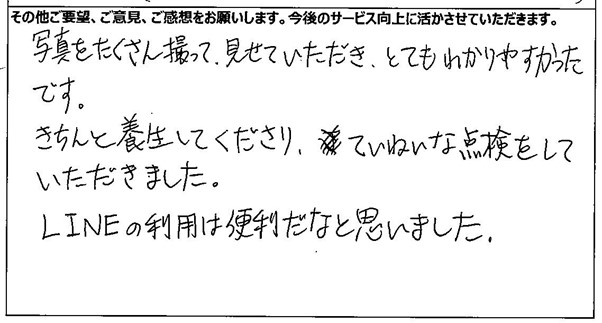 その他ご要望、ご意見、ご感想をお願いします。今後のサービス向上に活かさせていただきます。
写真をたくさん撮って、見せていただき、とてもわかりやすかった
です。
きちんと養生してくださり、ていねいな点検をして
いただきました。
LINEの利用は便利だなと思いました。